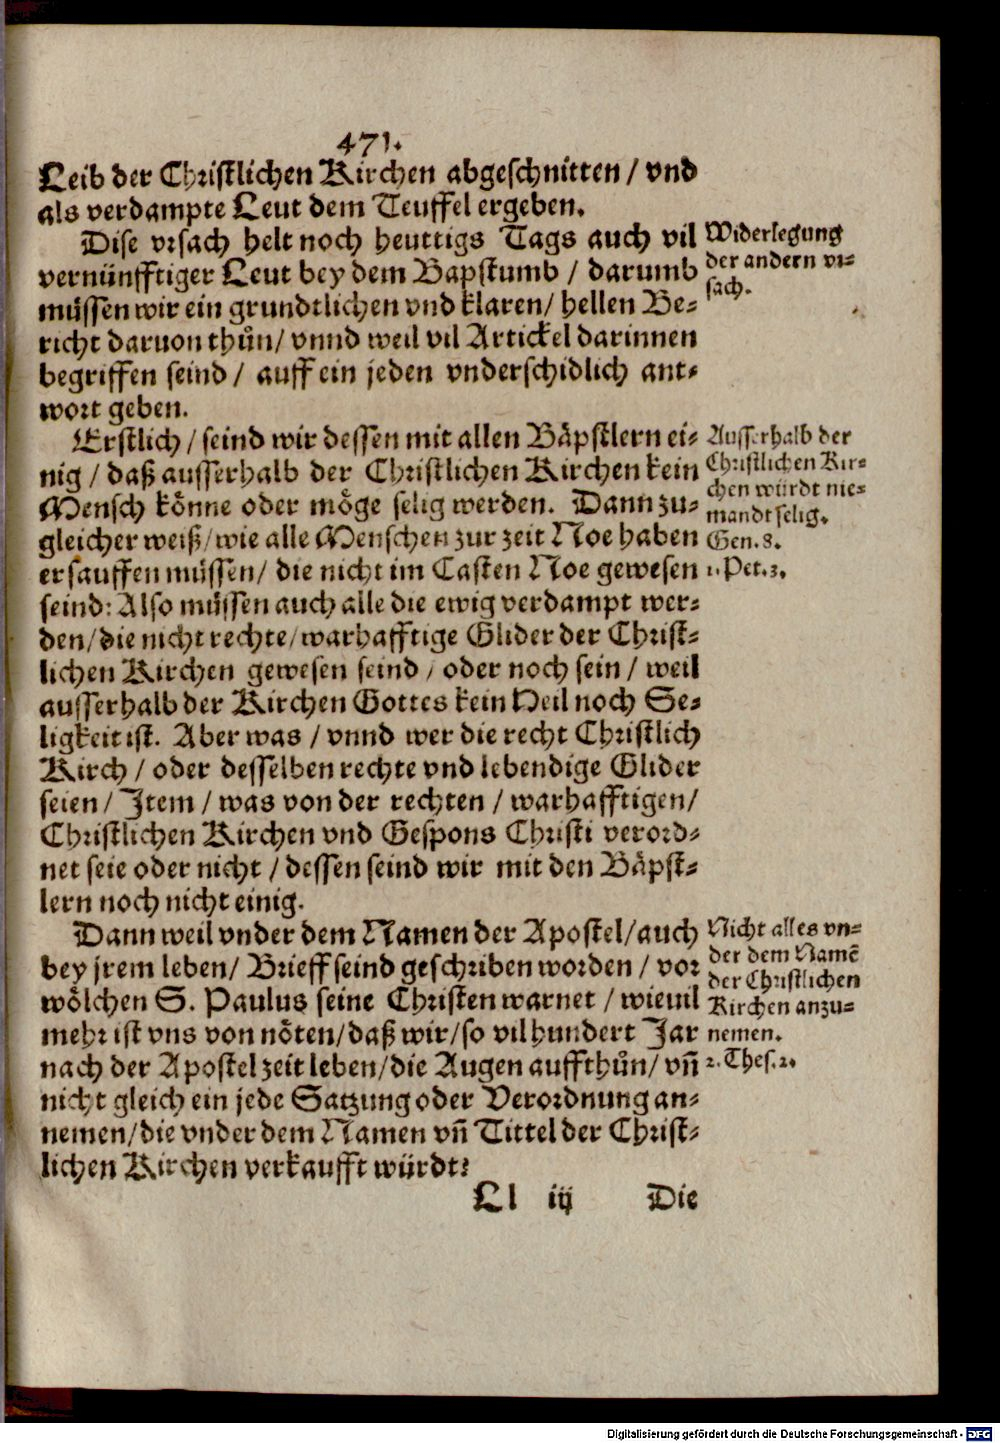 471.
Leib der Christlichen Kirchen abgeschnitten / vnd
als verdampte Leut dem Teuffel ergeben.
Dise vrsach helt noch heuttigs Tags auch vil
vernünfftiger Leut bey dem Bapstumb / darumb
müssen wir ein grundtlichen vnd klaren / hellen Be-
richt daruon thůn / vnnd weil vil Artickel darinnen
begriffen seind / auff ein jeden vnderschidlich ant-
wort geben.
Widerlegung
der andern vr-
sach.
Erstlich / seind wir dessen mit allen Bäpstlern ei-
nig / daß ausserhalb der Christlichen Kirchen kein
Mensch könne oder möge selig werden. Dann zu-
gleicher weiß / wie alle Menschen zur zeit Noe haben
ersauffen müssen / die nicht im Casten Noe gewesen
seind: Also müssen auch alle die ewig verdampt wer-
den / die nicht rechte / warhafftige Glider der Christ-
lichen Kirchen gewesen seind / oder noch sein / weil
ausserhalb der Kirchen Gottes kein Heil noch Se-
ligkeit ist. Aber was / vnnd wer die recht Christlich
Kirch / oder desselben rechte vnd lebendige Glider
seien / Item / was von der rechten / warhafftigen /
Christlichen Kirchen vnd Gespons Christi verord-
net seie oder nicht / dessen seind wir mit den Bäpst-
lern noch nicht einig.
Ausserhalb der
Christlichen Kir-
chen würdt nie-
mandt selig.
Gen. 8.
1. Pet. 3.
Dann weil vnder dem Namen der Apostel / auch
bey jrem leben / Brieff seind geschriben worden / vor
wölchen S. Paulus seine Christen warnet / wieuil
mehr ist vns von nöten / daß wir / so vil hundert Jar
nach der Apostel zeit leben / die Augen auffthůn / vñ
nicht gleich ein jede Satzung oder Verordnung an-
nemen / die vnder dem Namen vñ Tittel der Christ-
lichen Kirchen verkaufft würdt?
Nicht alles vn-
der dem Namẽ
der Christlichen
Kirchen anzu-
nemen.
2. Thes. 2.
Ll iij Die
Digitalisierung gefördert durch die Deutsche Forschungsgemeinschaft - DFG